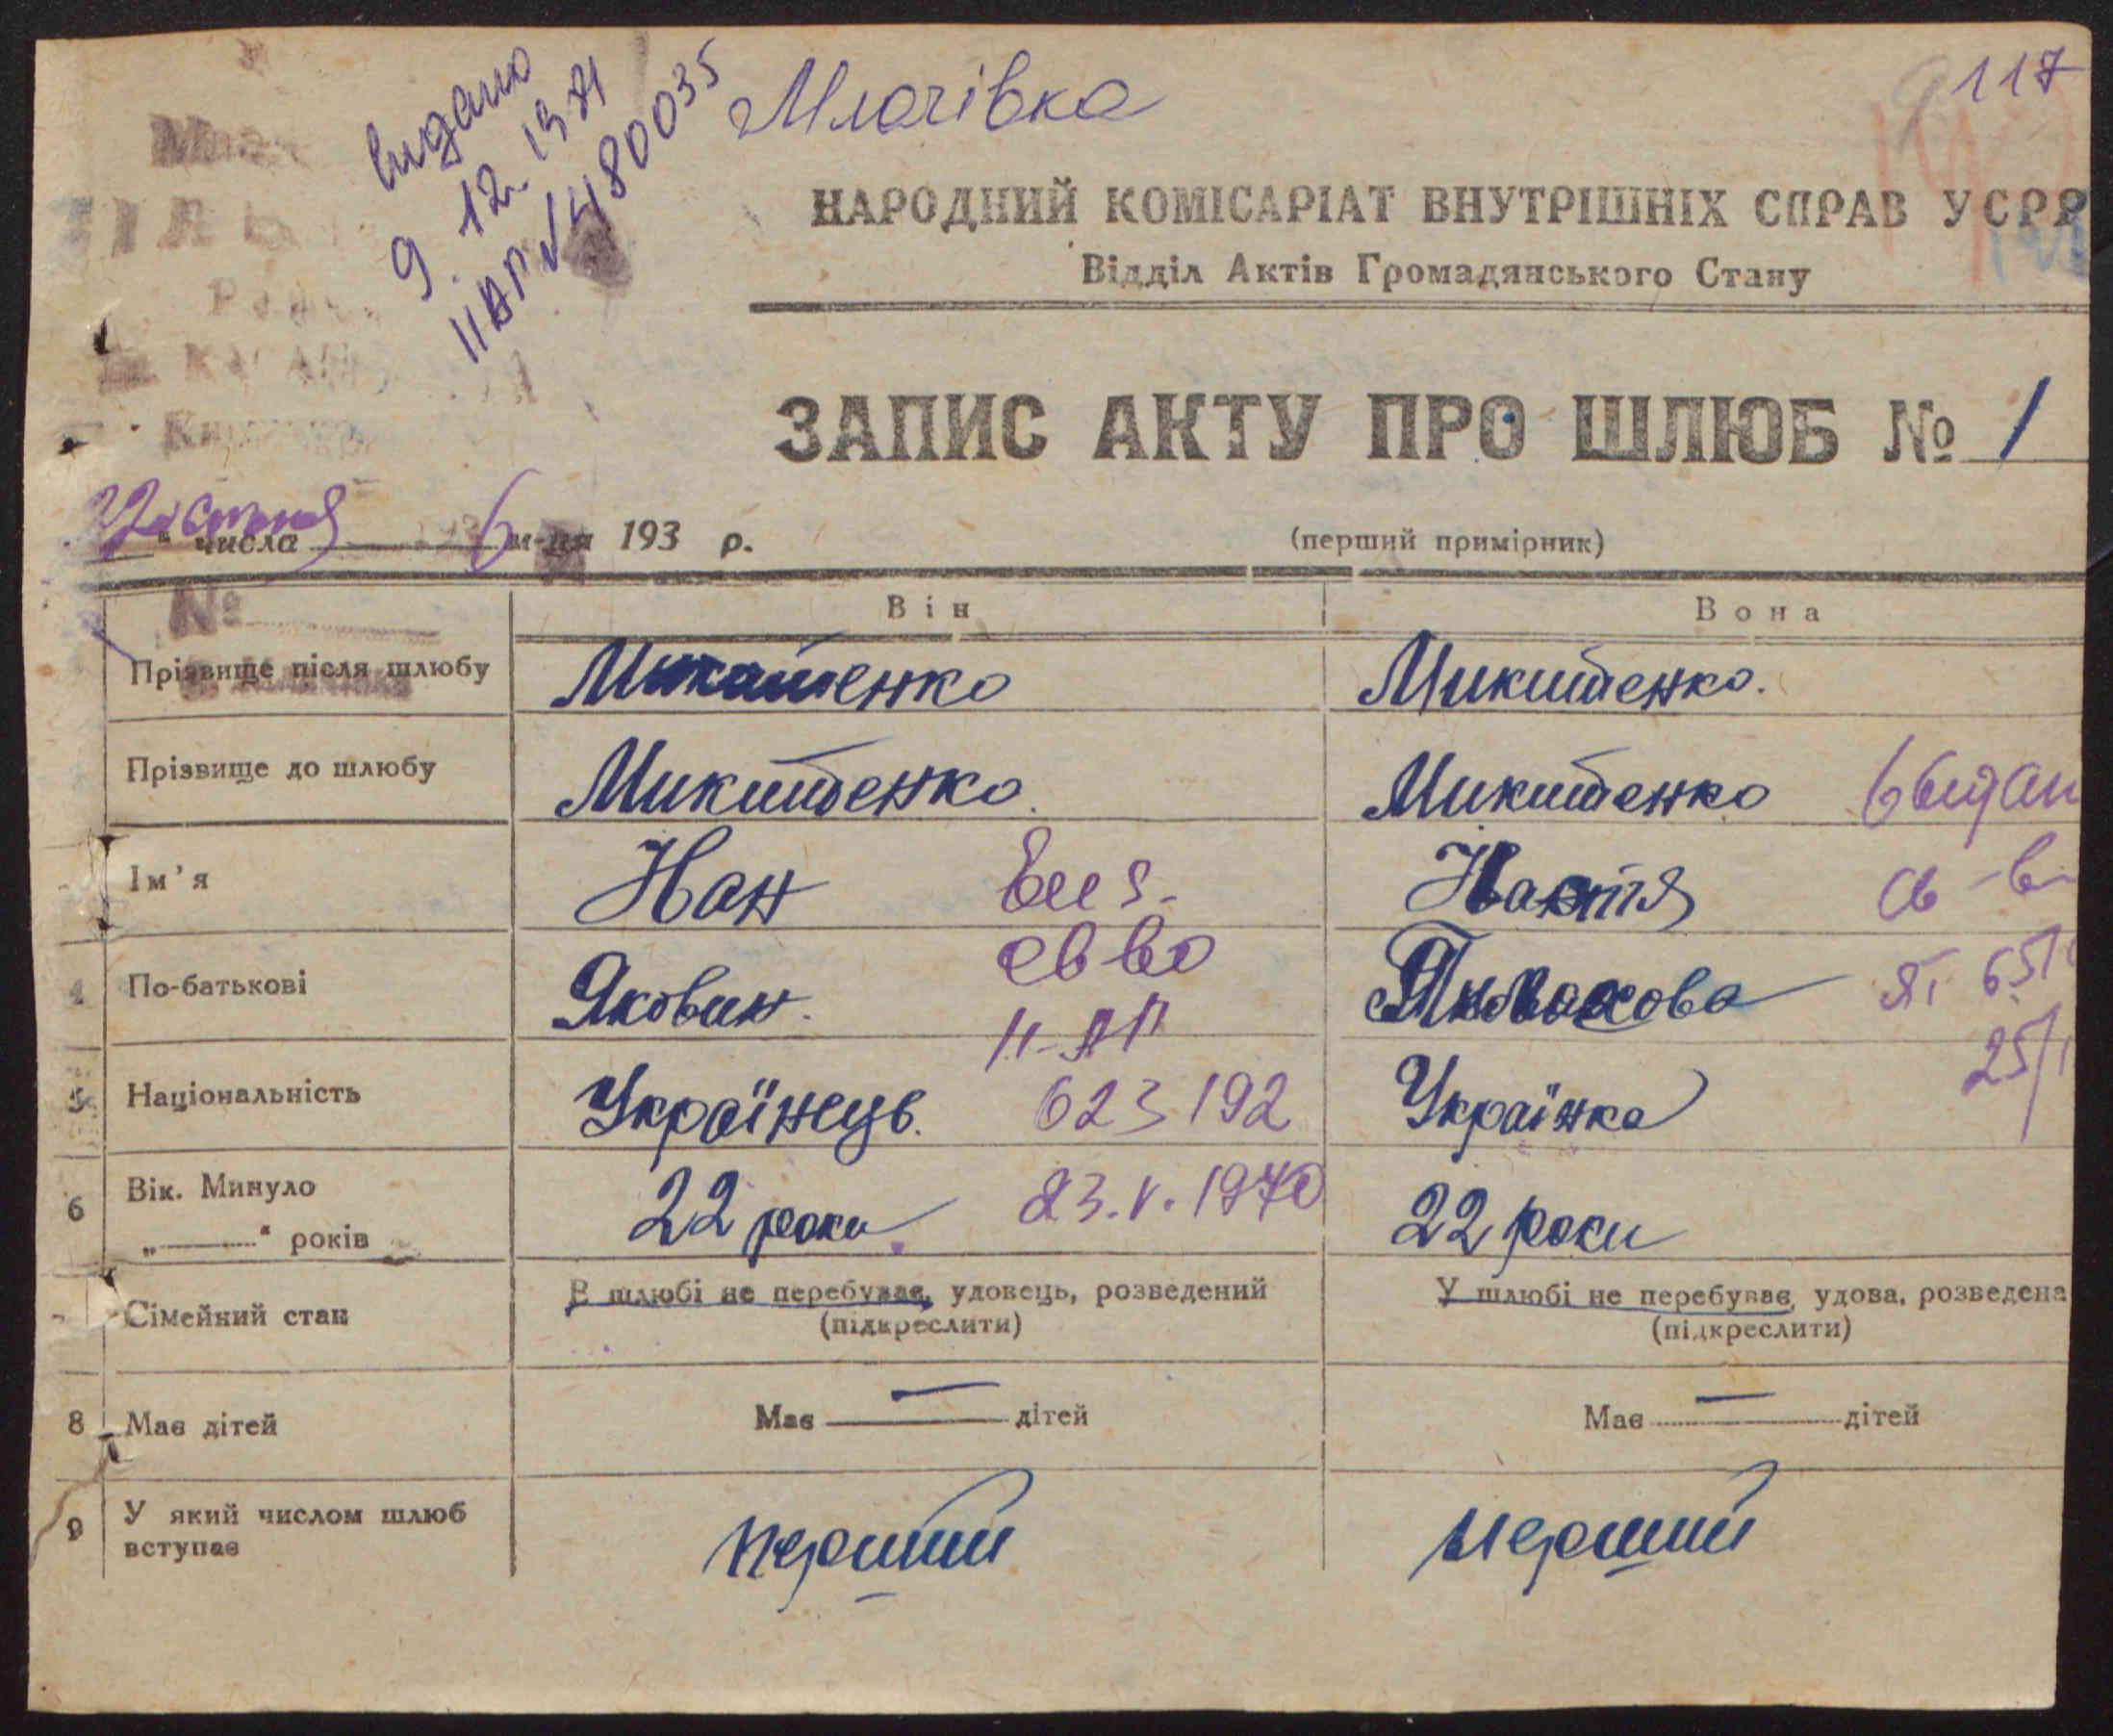 видано
9.12.1971
ІІАП№480035
Млачівка
117
НАРОДНИЙ КОМІСАРІАТ ВНУТРІШНІХ СПРАВ УСРР
Відділ Актів Громадянського Стану
ЗАПИС АКТУ ПРО ШЛЮБ № 1
числа 6 м-ця 193 р.
(перший примірник)
№
Він Вона
Прізвище після шлюбу Микитенко Микитенко.
Прізвище до шлюбу Микитенко. Микитенко
Ім'я Настя
4 По-батькові Якович.
св-во
ІІ-АП
5 Національність Українець. 623192 Українка
6 Вік. Минуло
„———“ років 22 роки 23.V.1970 22 роки
Сімейний стан В шлюбі не перебуває, удовець, розведений У шлюбі не перебуває, удова, розведена
(підкреслити) (підкреслити)
8 Має дітей Має — дітей Має — дітей
9 У який числом шлюб
вступає перший перший